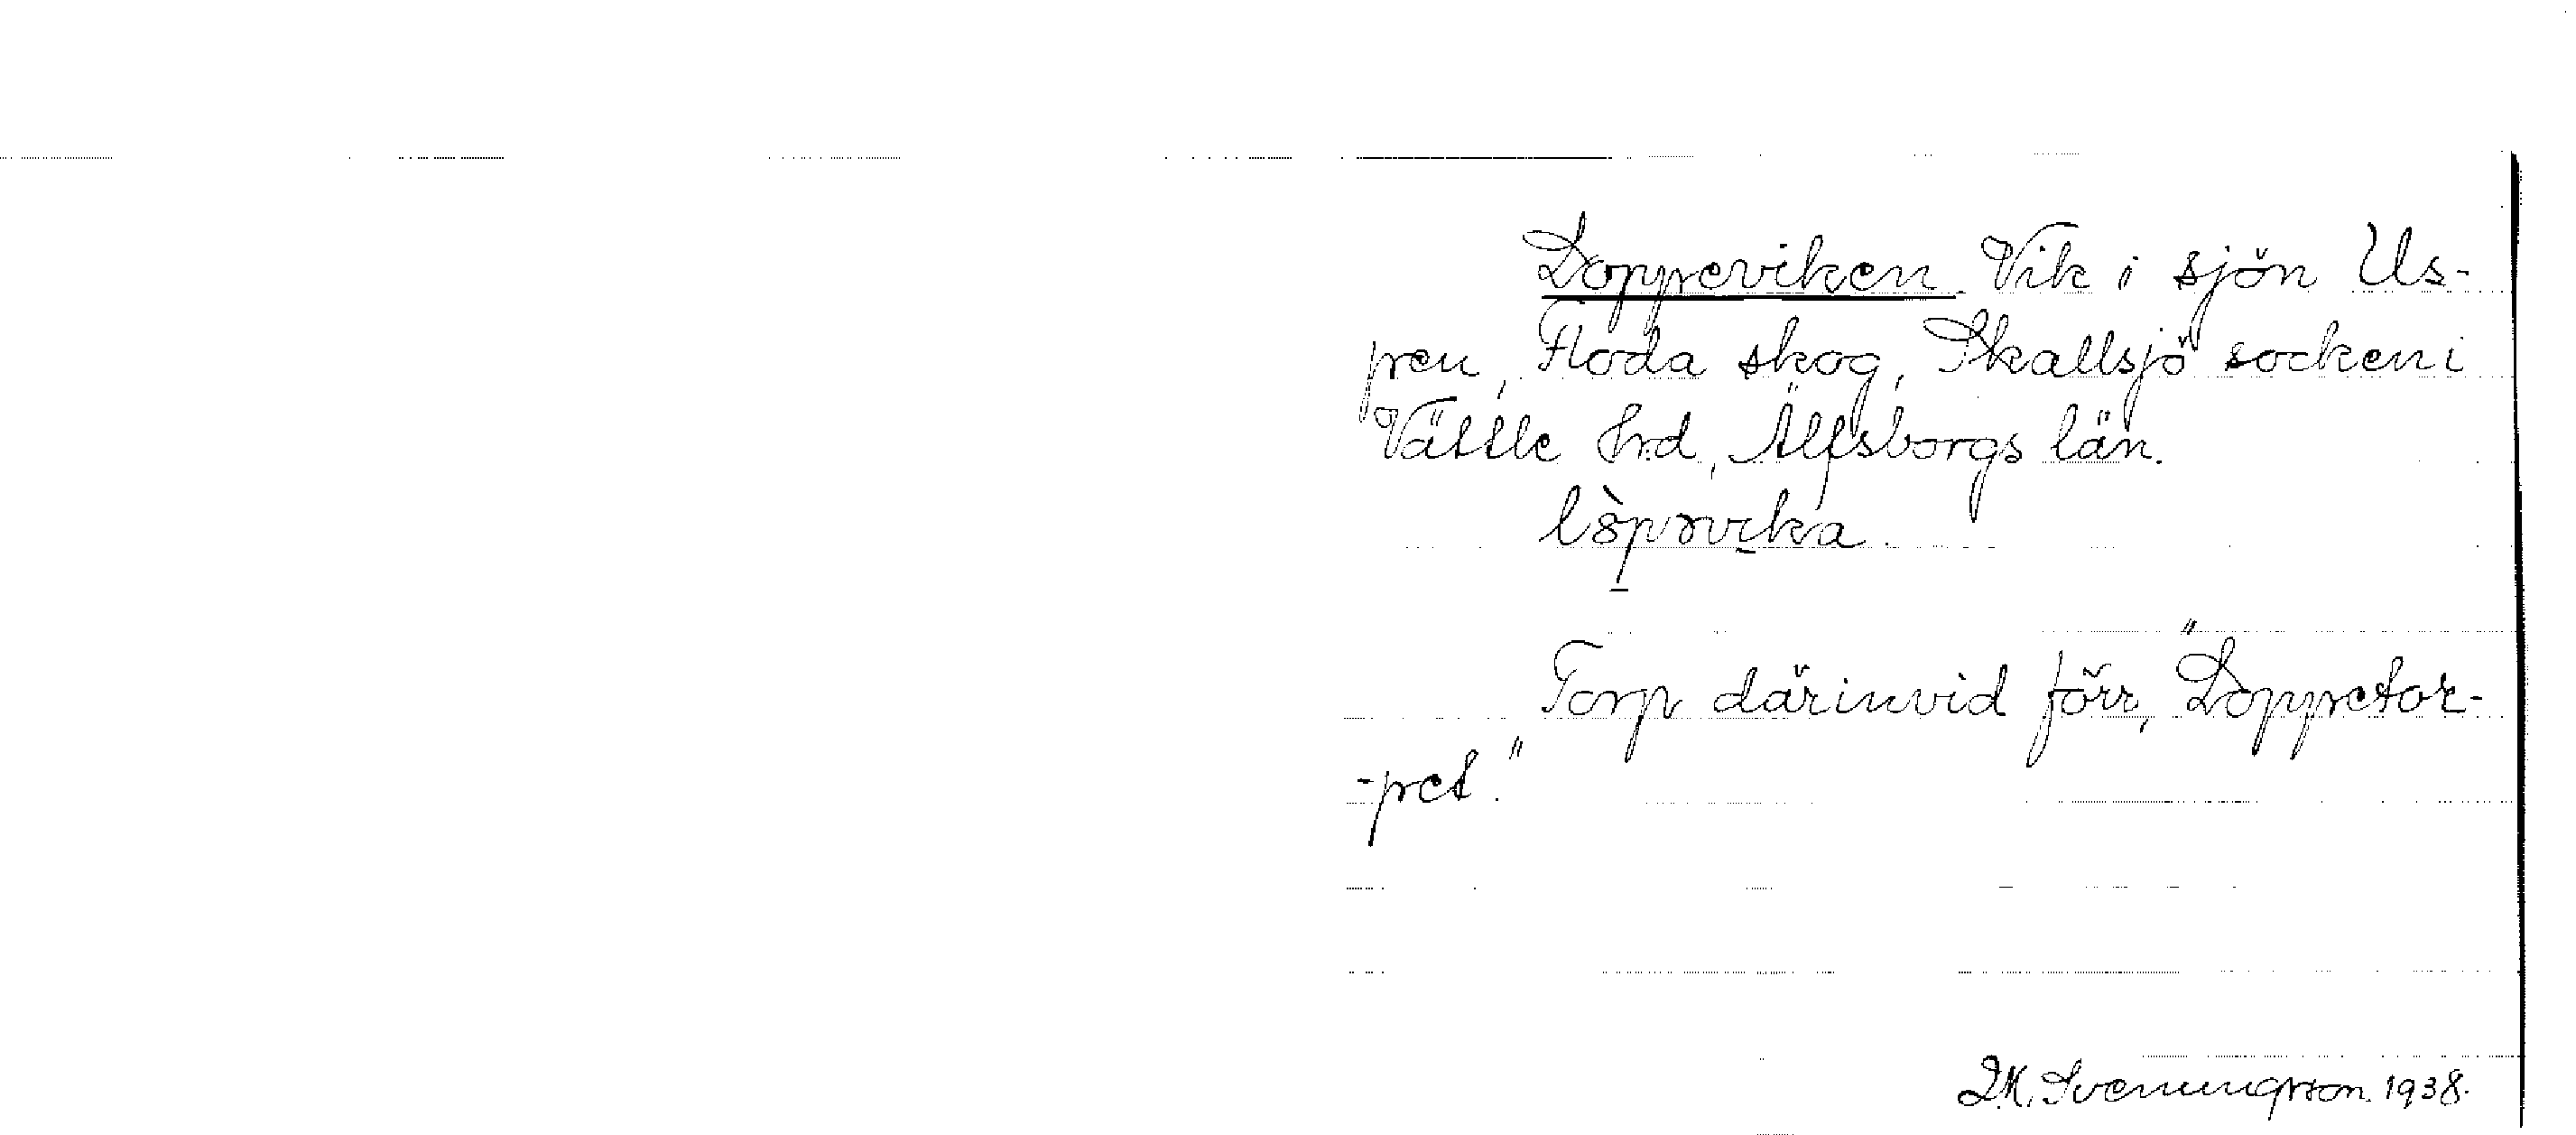 Loppeviken. Vik i sjön Us-
pen, Floda skog, Skallsjö socken i
Vättle hrd, Älfsborgs län.
Torp därinvid förr, "Loppetor-
-pet."
L.M. Svenningsson 1938.